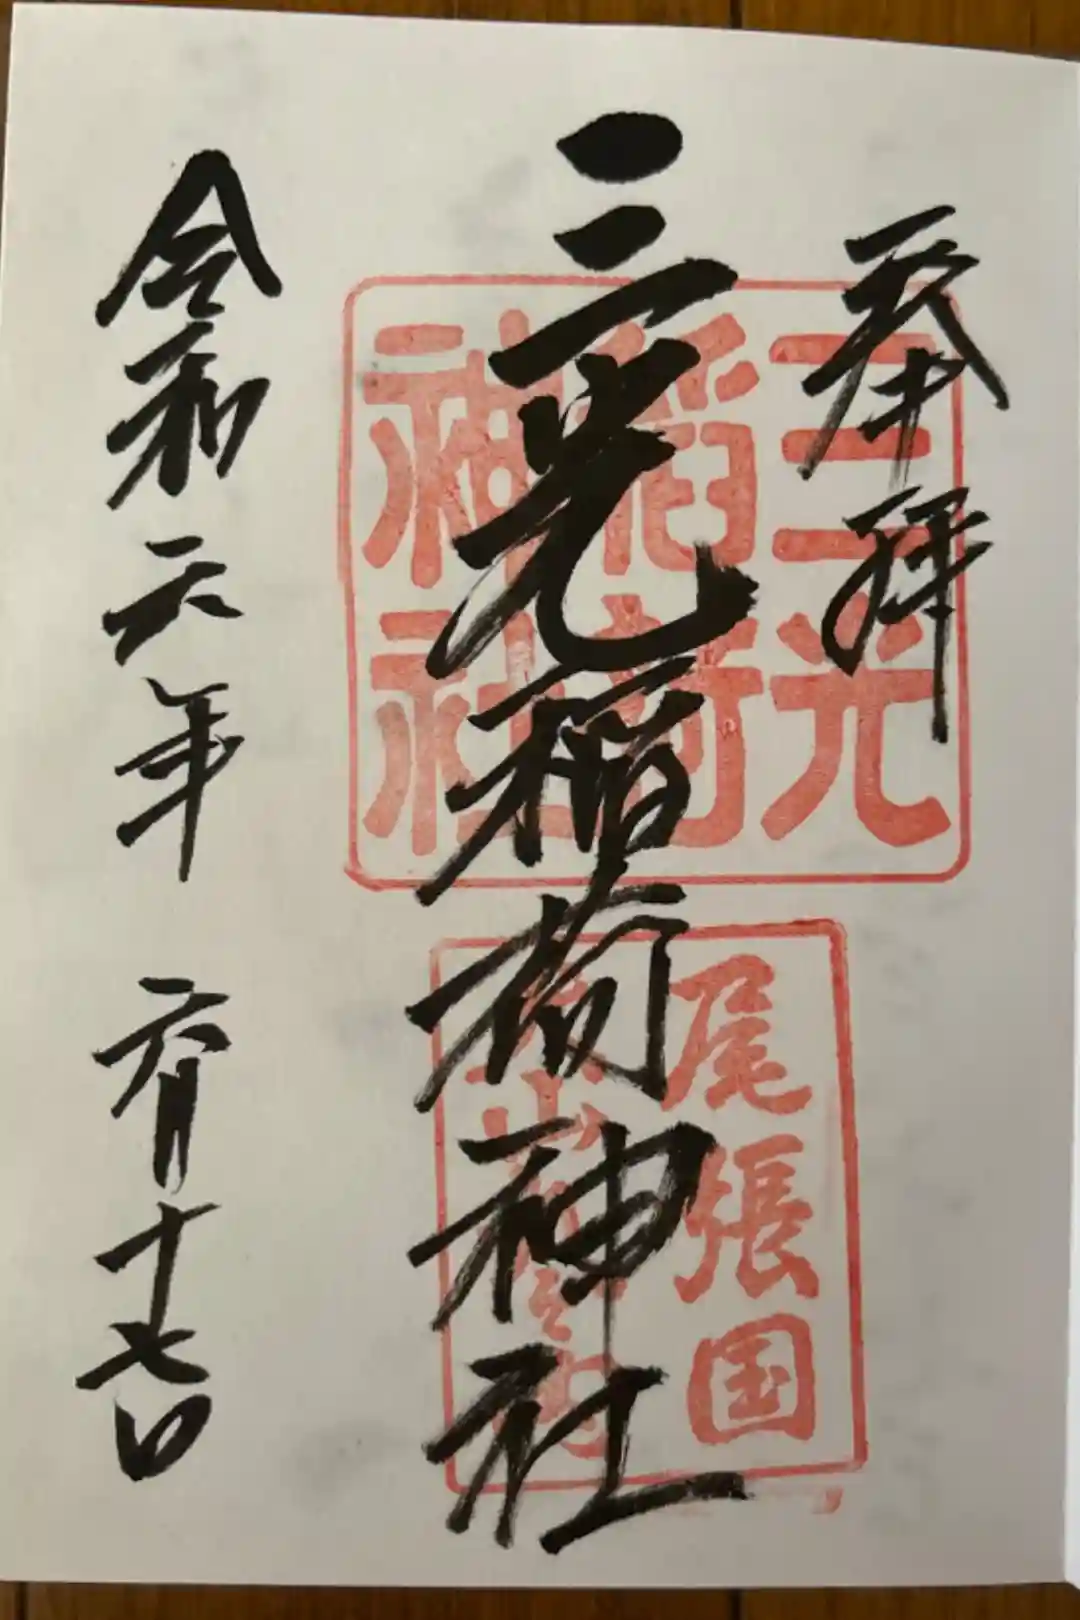 奉拝
三光稲荷神社
令和六年 六月十七日
三光
稲荷
神社
尾張国